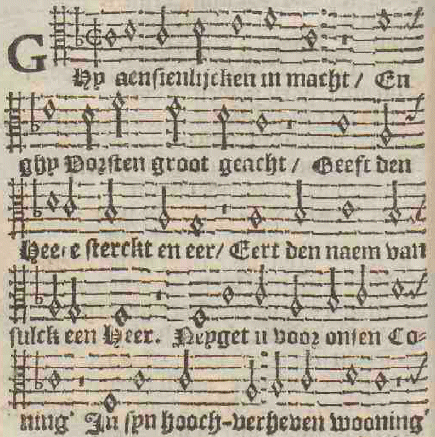 GHy aensienlijcken in macht / En
ghy Vorsten groot geacht / Geeft den
Heere sterckt en eer / Eert den naem van
sulck een Heer. Neyget u voor onsen Co-
ning' In syn hooch-verheven wooning'